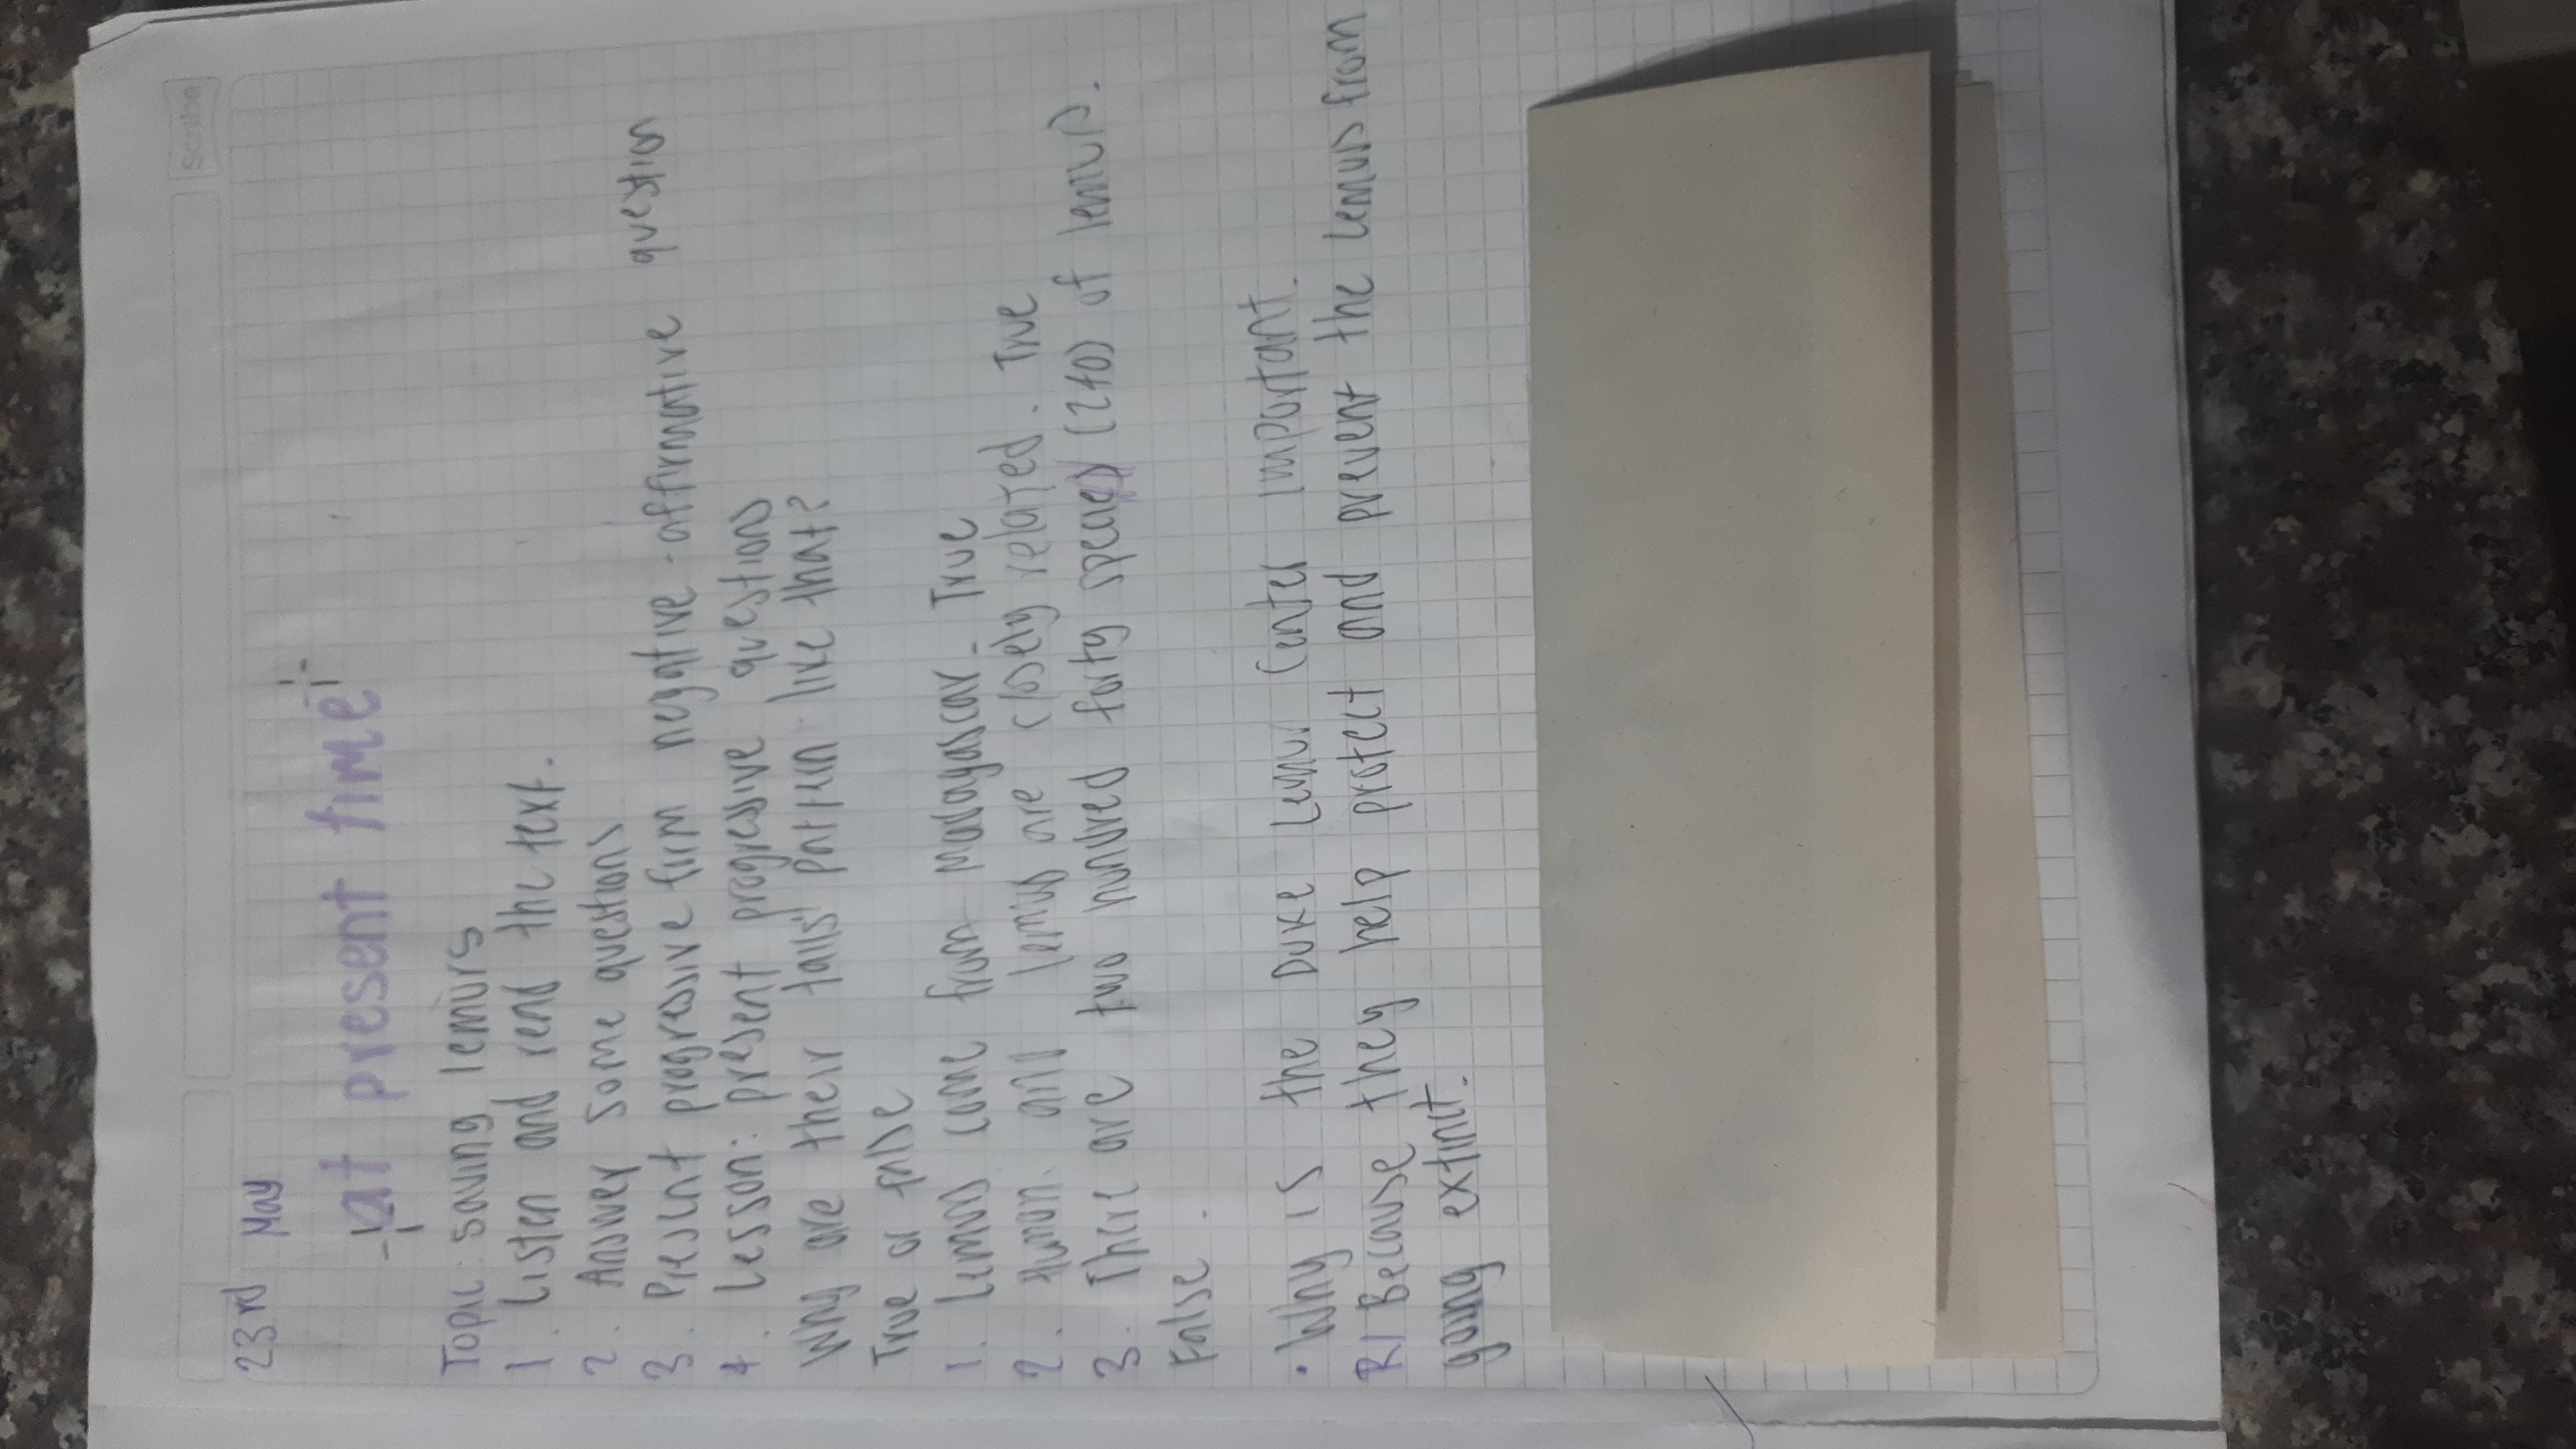 Scribe
23rd May
at present time
Topic: saving lemurs
1. Listen and read the text.
2. Answer some questions
3. Present progressive firm negative - affirmative question
4. Lesson: present progressive questions
Why are their tails pattern like that?
True or false
1. Lemurs come from madagascar. True
2. Human and lemurs are closely related. True
3. There are two hundred forty species (240) of lemurs.
False.
• Why is the Duke Lemur Center important.
R/ Because they help protect and prevent the lemurs from
going extint.